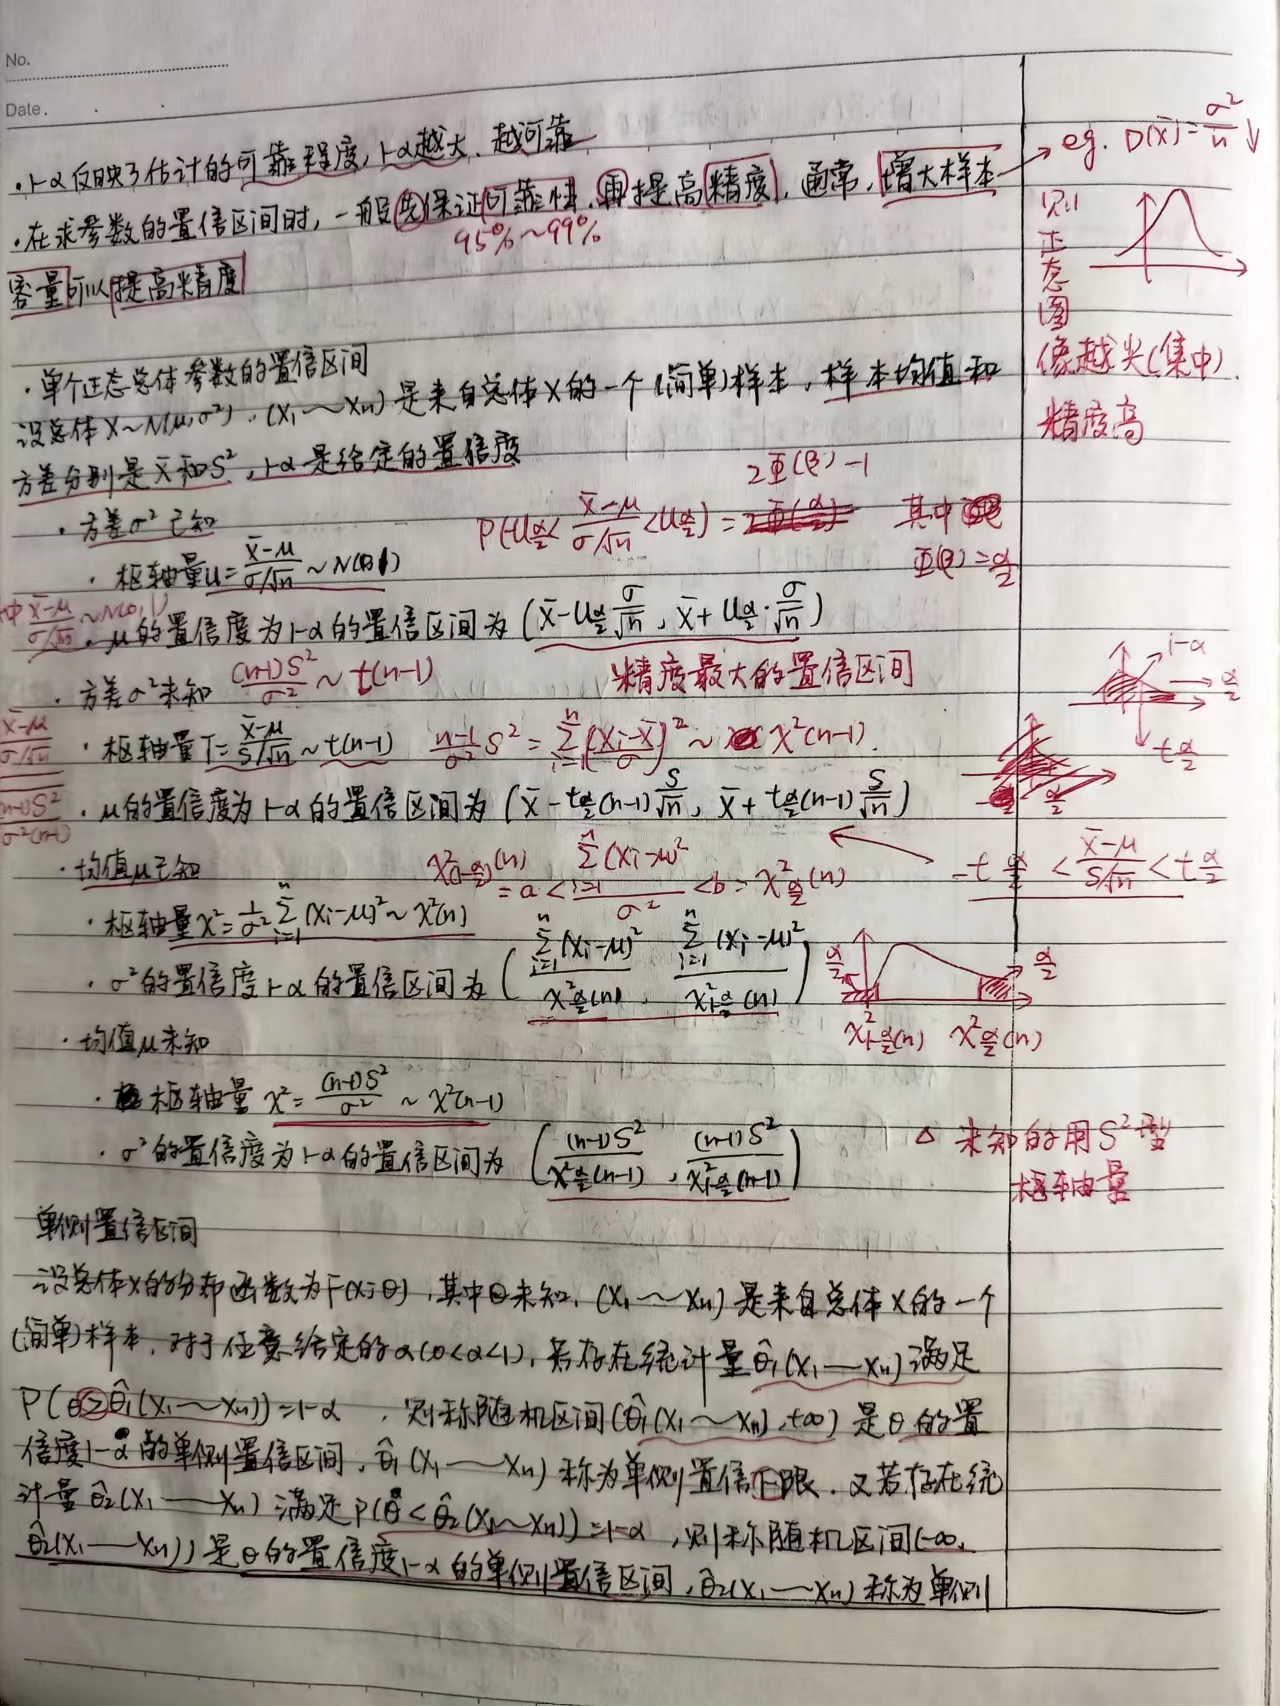 No.
Date.
·1-α反映了估计的可靠程度,1-α越大、越可靠
·在求参数的置信区间时,一般先保证可靠性,再提高精度,通常,增大样本
95%~99%
容量可以提高精度
eg. D(X̄)=σ²/n↓
则正态图
像越尖(集中).
精度高
·单个正态总体参数的置信区间
设总体X~N(μ,σ²),(X₁~Xn)是来自总体X的一个(简单)样本,样本均值和
方差分别是X̄和S²,1-α是给定的置信度
2Φ(β)-1
·方差σ²已知
P(-Uα/2<(X̄-μ)/(σ/√n)<Uα/2)= 其中
Φ(β)=α/2
·枢轴量U=(X̄-μ)/(σ/√n)~N(0,1)
(X̄-μ)/(σ/√n)~N(0,1)
·μ的置信度为1-α的置信区间为(X̄-Uα/2 σ/√n, X̄+Uα/2·σ/√n)
·方差σ²未知 (n-1)S²/σ²~t(n-1) 精度最大的置信区间
1-α
α/2
tα/2
(X̄-μ)/(σ/√n)
·枢轴量T=(X̄-μ)/(S/√n)~t(n-1) (n-1)/σ² S²=Σⁿᵢ₌₁((Xi-X̄)/σ)²~χ²(n-1).
α/2
(n-1)S²/σ²(n-1)
·μ的置信度为1-α的置信区间为(X̄-tα/2(n-1)S/√n, X̄+tα/2(n-1)S/√n)
-tα/2<(X̄-μ)/(S/√n)<tα/2
·均值μ已知 χ²(1-α/2)(n)=a<Σⁿᵢ₌₁(Xi-μ)²/σ²<b=χ²α/2(n)
·枢轴量χ²=1/σ² Σⁿᵢ₌₁(Xi-μ)²~χ²(n)
·σ²的置信度1-α的置信区间为(Σⁿᵢ₌₁(Xi-μ)²/χ²α/2(n), Σⁿᵢ₌₁(Xi-μ)²/χ²1-α/2(n))
α/2 α/2
χ²1-α/2(n) χ²α/2(n)
·均值μ未知
·枢轴量χ²=(n-1)S²/σ²~χ²(n-1)
·σ²的置信度为1-α的置信区间为((n-1)S²/χ²α/2(n-1), (n-1)S²/χ²1-α/2(n-1))
△ 未知的用S²型
枢轴量
单侧置信区间
设总体X的分布函数为F(X;θ),其中θ未知,(X₁~Xn)是来自总体X的一个
(简单)样本,对于任意给定的α(0<α<1),若存在统计量θ̂₁(X₁—Xn)满足
P(θ≥θ̂₁(X₁~Xn))=1-α,则称随机区间(θ̂₁(X₁~Xn),+∞)是θ的置
信度1-α的单侧置信区间,θ̂₁(X₁—Xn)称为单侧置信下限.又若存在统
计量θ̂₂(X₁—Xn)满足P(θ<θ̂₂(X₁~Xn))=1-α,则称随机区间(-∞,
θ̂₂(X₁—Xn))是θ的置信度1-α的单侧置信区间,θ̂₂(X₁—Xn)称为单侧